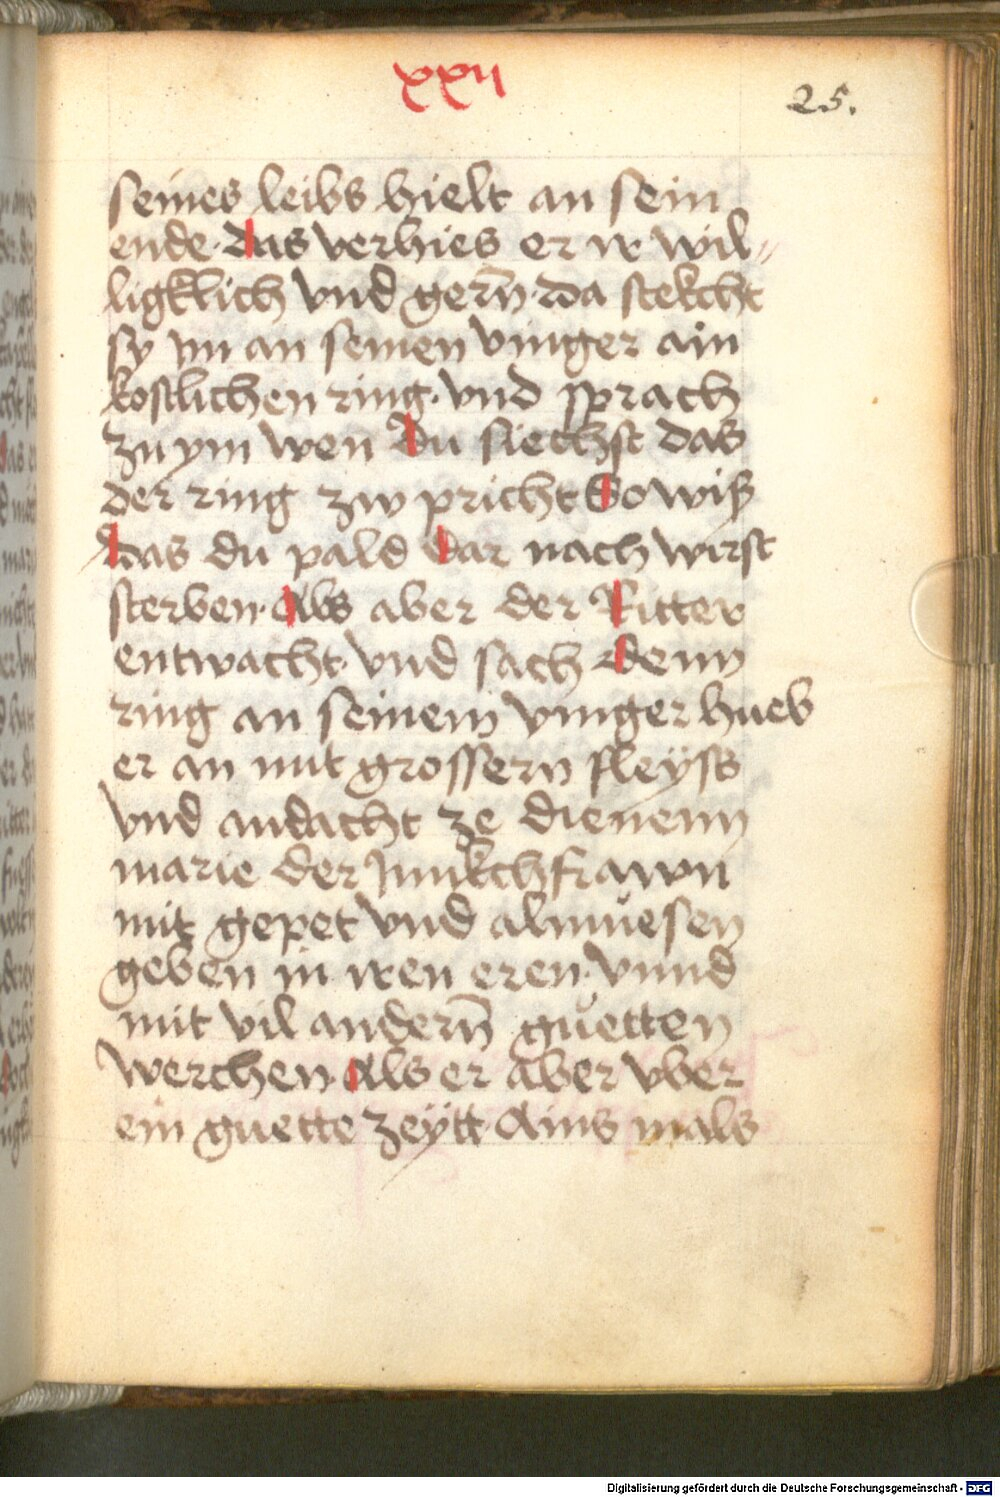 xxii
25.
seines leibs hielt an sein
ende. das verhies er ir wil„
ligklich vnd gern̄. da stekcht
sy im an seinen vinger ain
kostlichen ring. vnd sprach
zu ym wen du siechst das
der ring zw pricht So wiß
das du pald dar nach wirst
sterben. Als aber der Ritter
entwacht. vnd sach denn
ring an seinem vinger hueb
er an mit grossern fleyss
vnd andacht ze dienenn
marie der Junkchfrawn
mit gepet vnd almuesen
geben in iren eren. vnnd
mit vil andern̄ guetten
werchen. Als er aber vber
ein guette zeÿtt. Ains mals
Digitalisierung gefördert durch die Deutsche Forschungsgemeinschaft - DFG